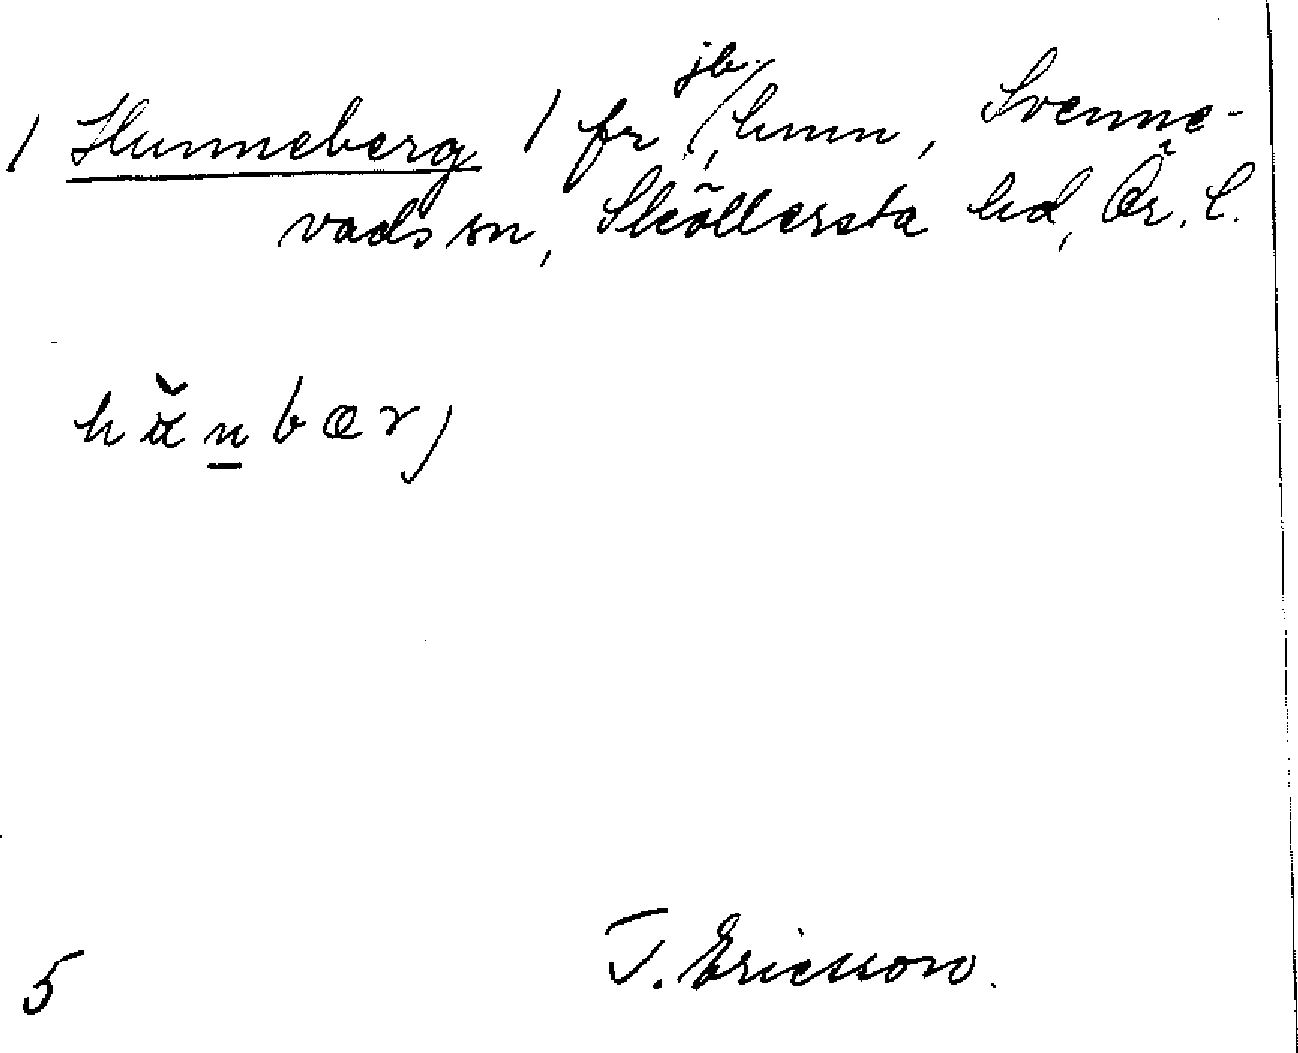 / Hunneberg / fr jb, hmn, Svenne-
vads sn, Sköllersta hd, Ör. l.
5
T. Ericsson.